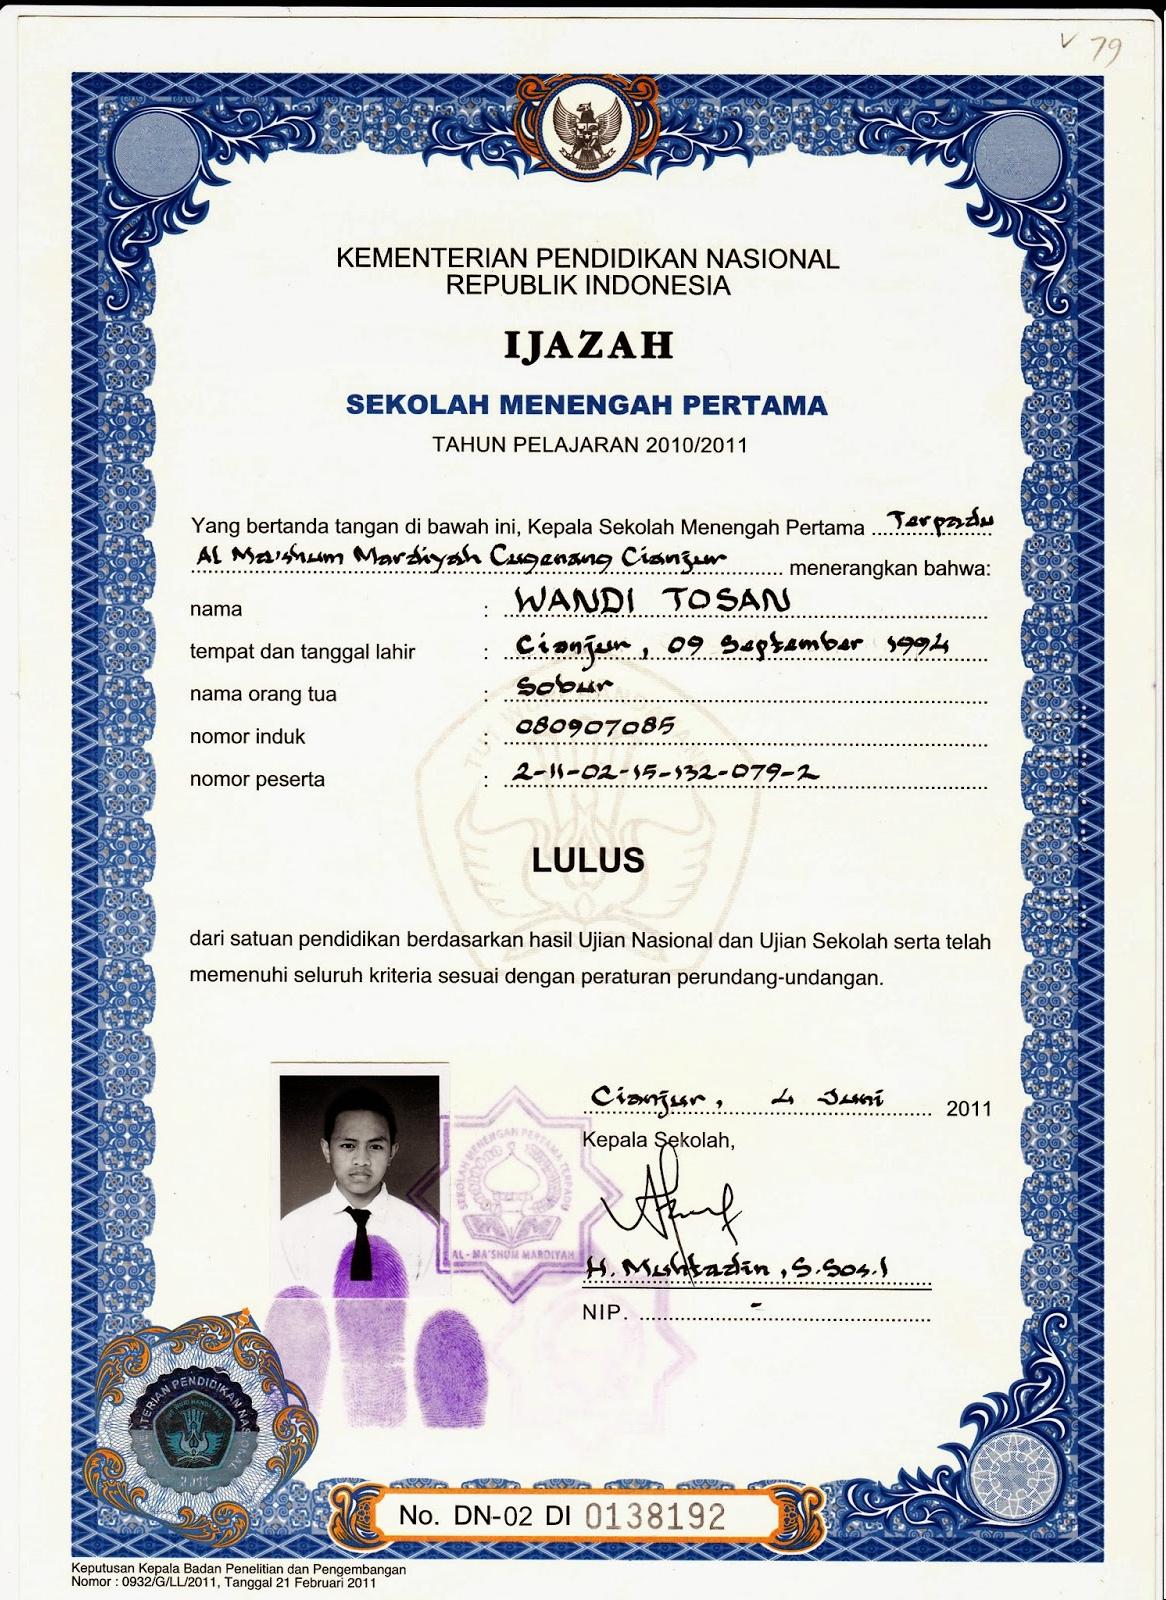 V 79
KEMENTERIAN PENDIDIKAN NASIONAL
REPUBLIK INDONESIA
IJAZAH
SEKOLAH MENENGAH PERTAMA
TAHUN PELAJARAN 2010/2011
Yang bertanda tangan di bawah ini, Kepala Sekolah Menengah Pertama Terpadu
Al Ma'shum Mardiyah Cugenang Cianjur menerangkan bahwa:
nama : WANDI TOSAN
tempat dan tanggal lahir : Cianjur, 09 September 1994
nama orang tua : Sobur
nomor induk : 080907085
nomor peserta : 2-11-02-15-132-079-2
TUT WURI HANDAYANI
LULUS
dari satuan pendidikan berdasarkan hasil Ujian Nasional dan Ujian Sekolah serta telah
memenuhi seluruh kriteria sesuai dengan peraturan perundang-undangan.
Cianjur, 4 Juni 2011
Kepala Sekolah,
SEKOLAH MENENGAH PERTAMA TERPADU
AL - MA'SHUM MARDIYAH
H. Muhtadin, S.Sos.I
NIP. -
KEMENTERIAN PENDIDIKAN NASIONAL
2011
No. DN-02 DI 0138192
Keputusan Kepala Badan Penelitian dan Pengembangan
Nomor : 0932/G/LL/2011, Tanggal 21 Februari 2011